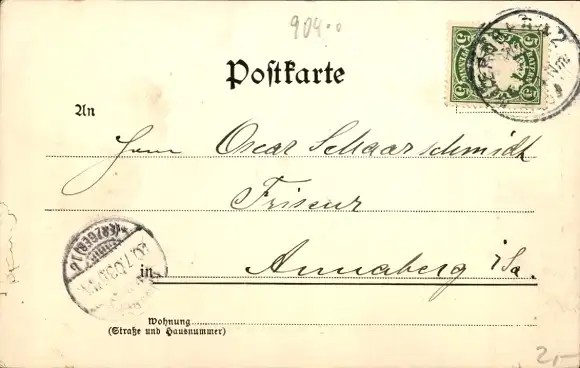 904..
Postkarte
An
Herrn Oscar Schaarschmidt
Friseur
in Annaberg i/Sa.
Wohnung
(Straße und Hausnummer)
5 5
5 5
(ERZGEB.)
2,-